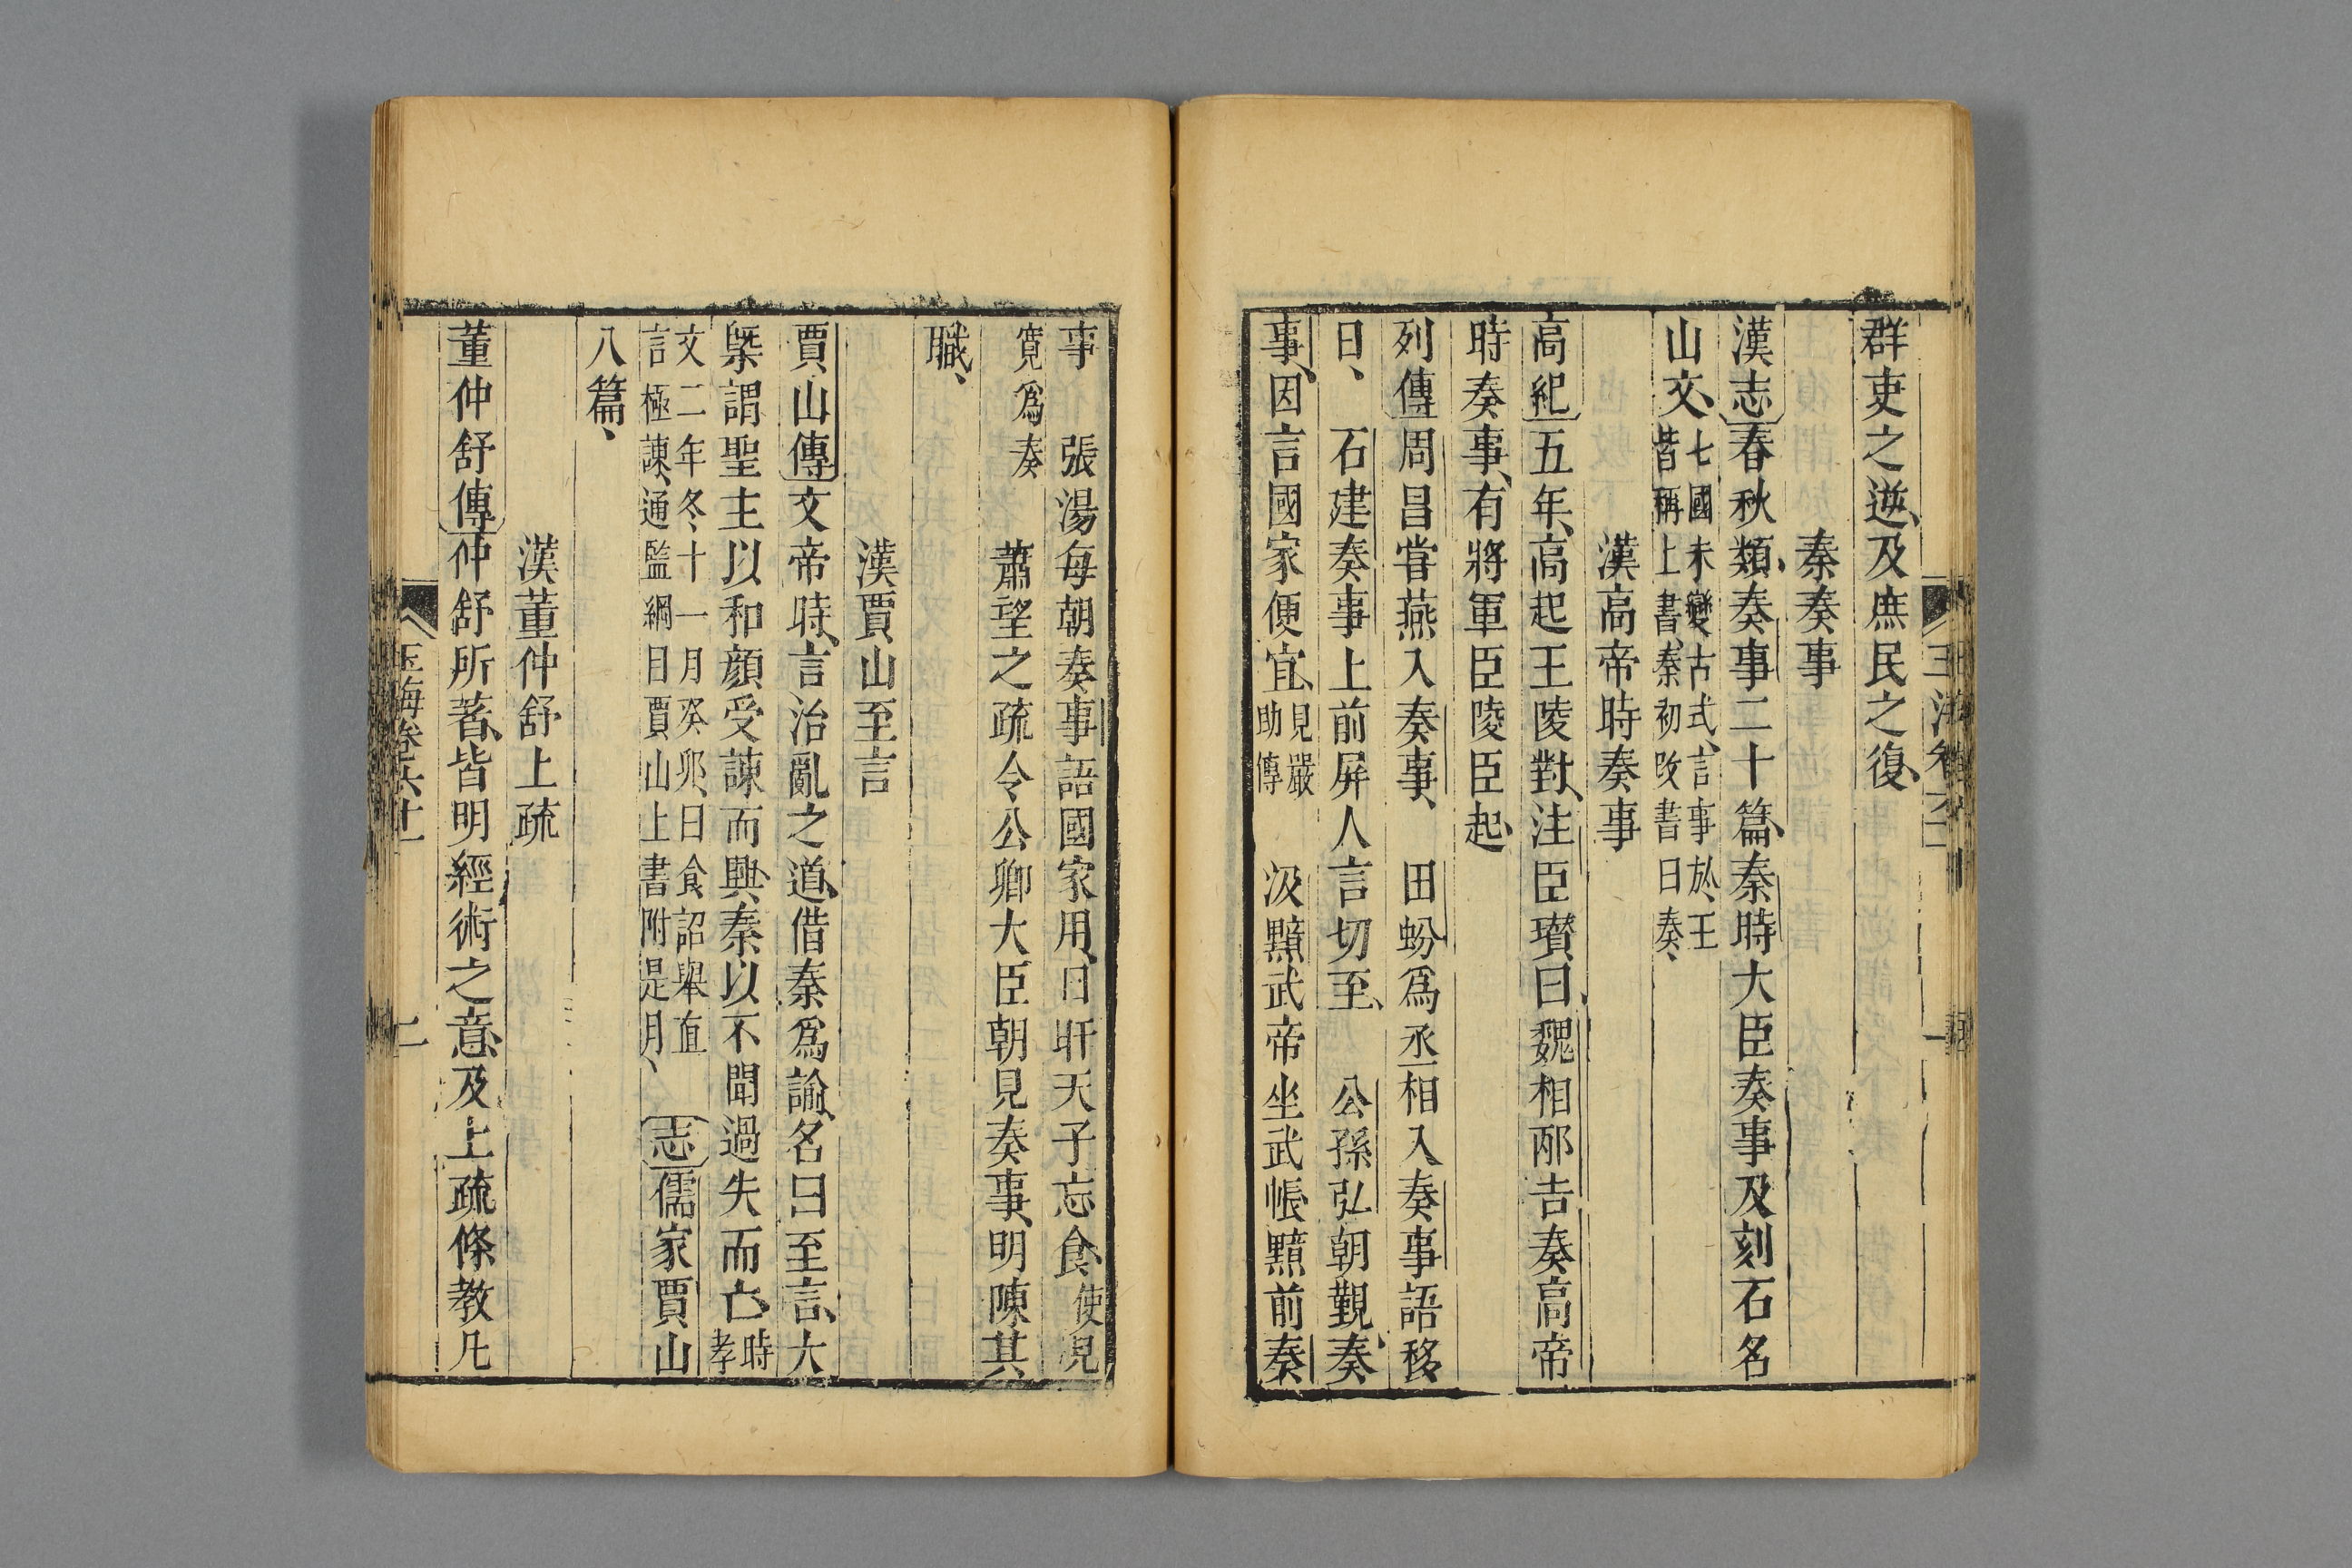 群吏之逆、及庶民之復、
秦奏事
漢志春秋類、奏事二十篇、秦時大臣奏事及刻石名
山文、七國未變古式、言事於王
皆稱上書、秦初改書曰奏、
漢高帝時奏事
高紀五年、高起王陵對、注臣瓚曰、魏相邴吉奏高帝
時奏事、有將軍臣陵臣起、
列傳周昌嘗燕入奏事、田蚡爲丞相入奏事語移
日、石建奏事上前屏人言切至、公孫弘朝觀奏、
事、因言國家便宜、見嚴
助傳
汲黯武帝坐武帳黯前奏
事 張湯每朝奏事語國家用、日旰天子忘食、使見
寬爲奏
蕭望之疏令公卿大臣朝見奏事、明陳其
職、
漢賈山至言
賈山傳文帝時、言治亂之道、借秦爲諭、名曰至言、大
槩謂聖主以和顏受諫而興、秦以不聞過失而亡、時
孝
文二年冬、十一月癸卯、日食詔舉直
言極諫、通監綱目賈山上書附是月、
志儒家賈山
八篇、
漢董仲舒上疏
董仲舒傳仲舒所著、皆明經術之意、及上疏條教凡
玉海卷六十一
二